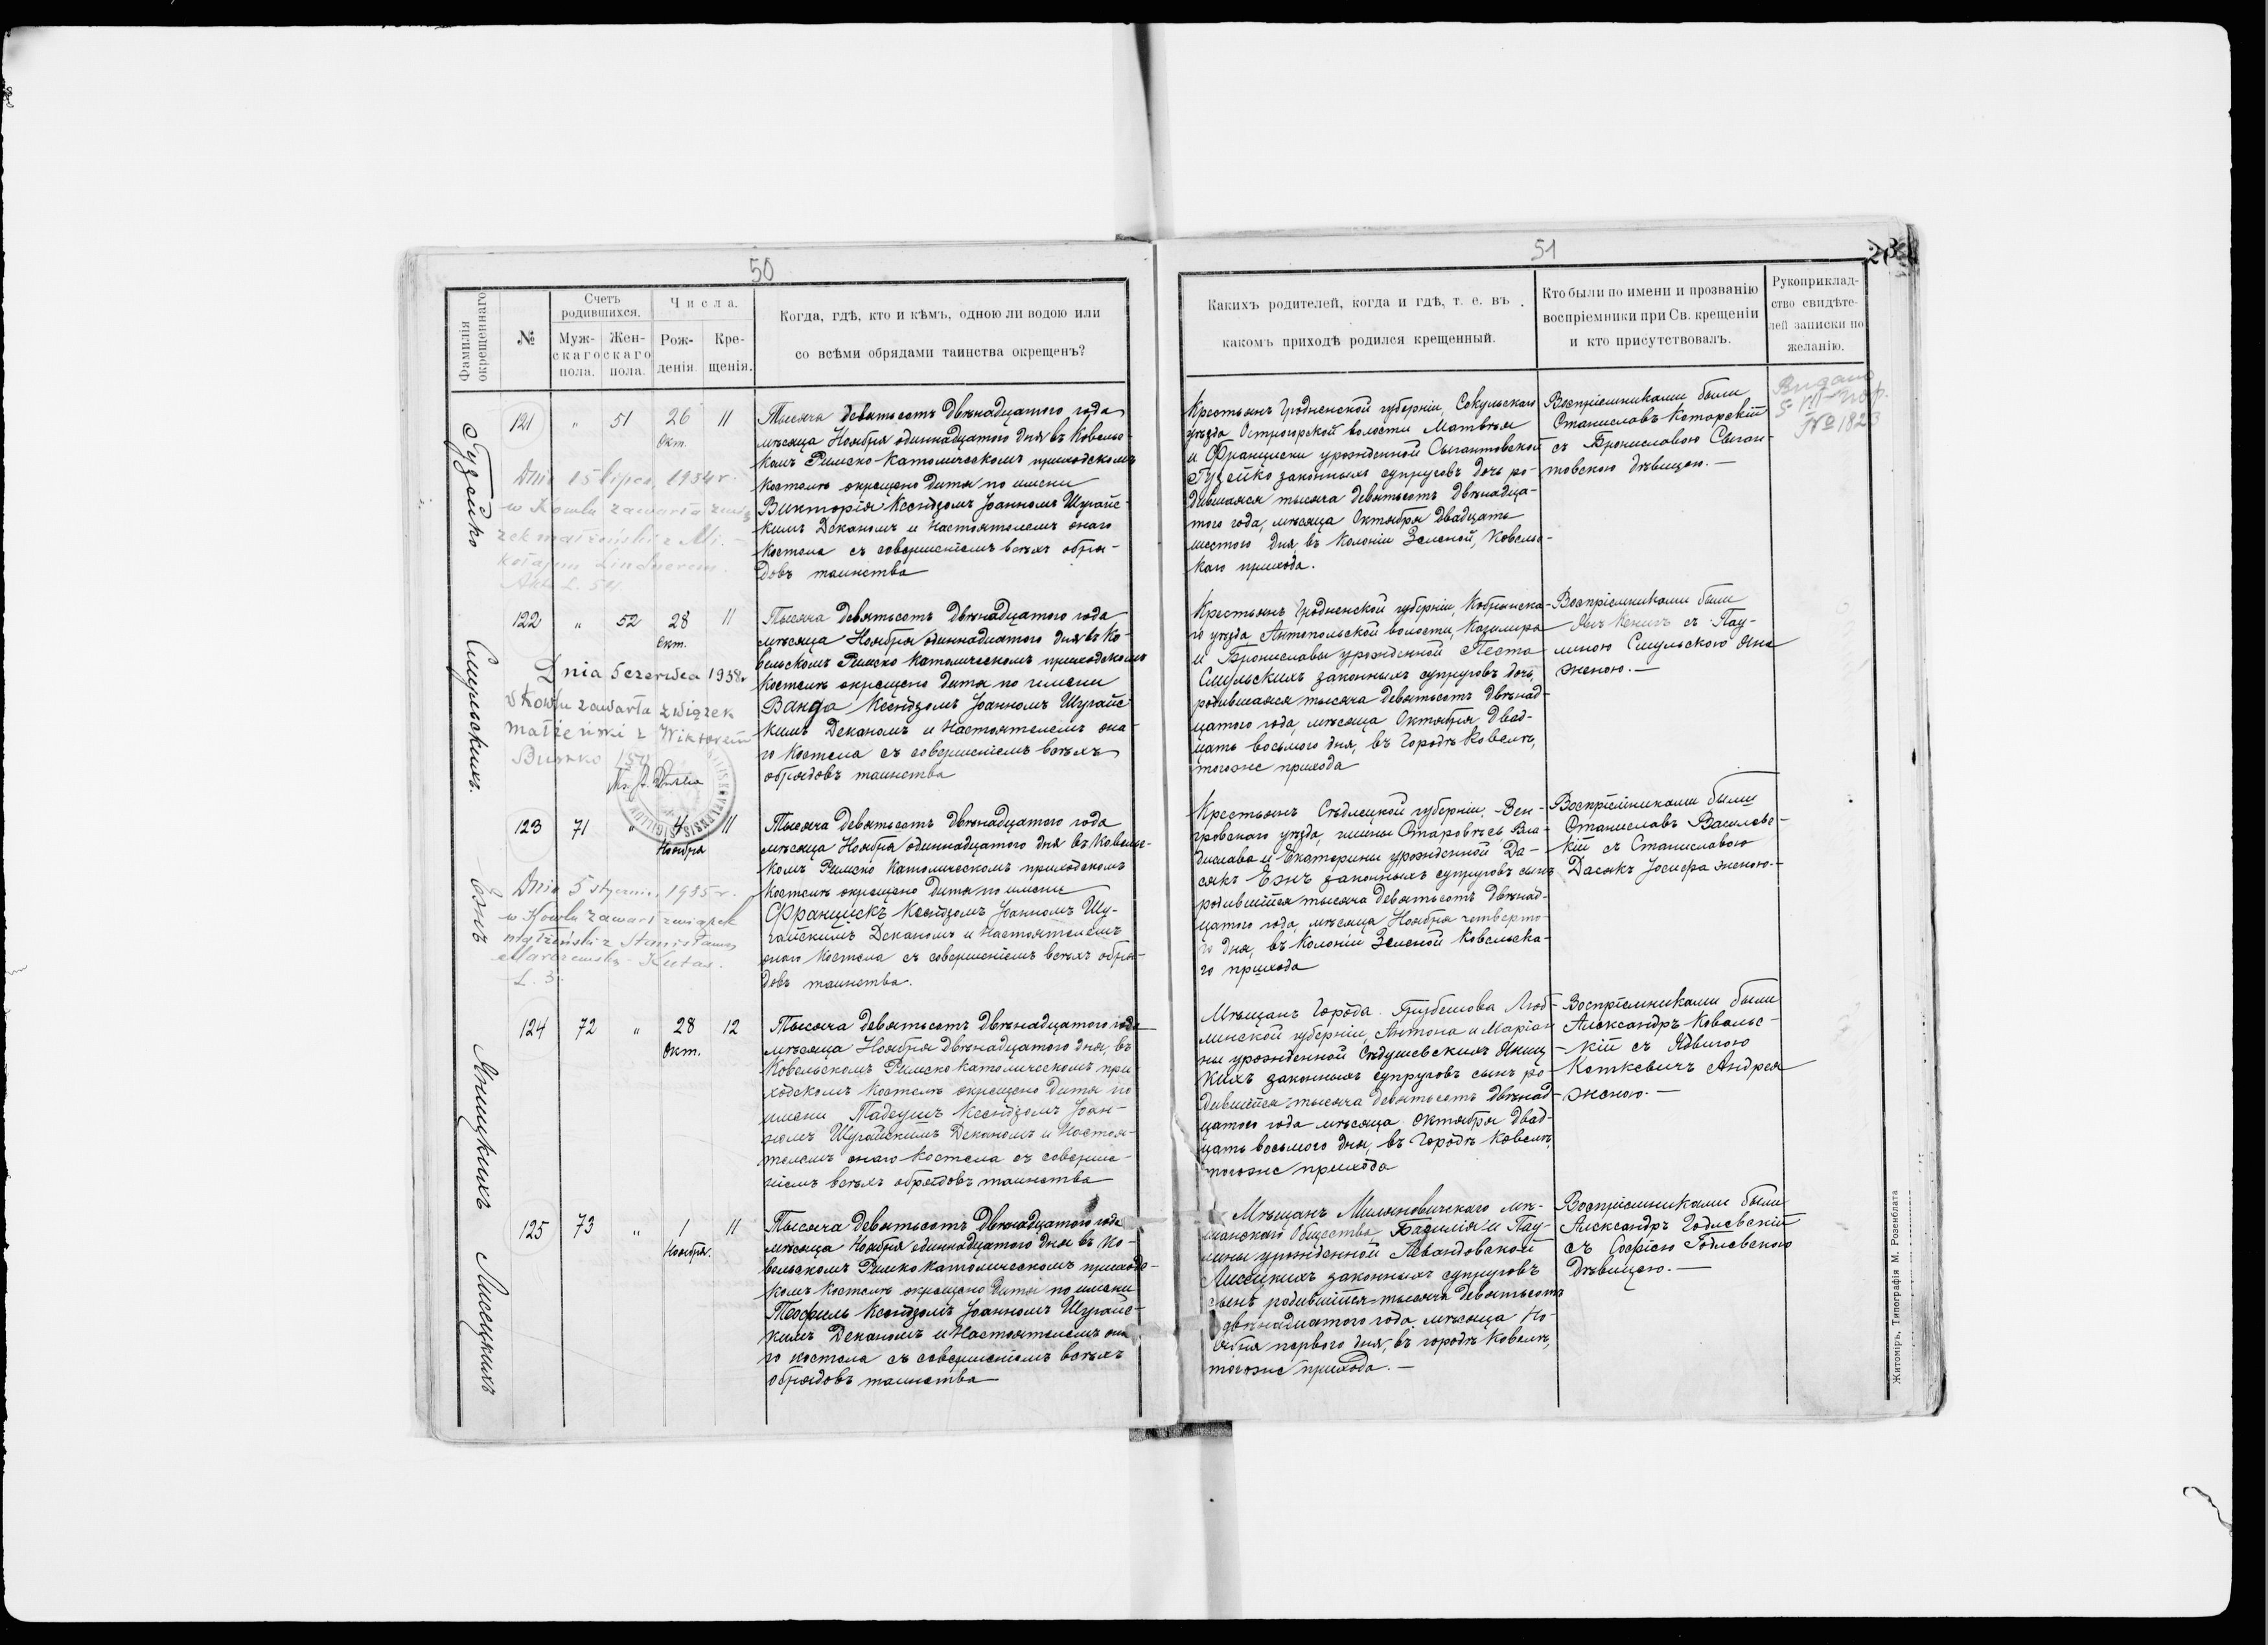 50
Фамилія окрещеннаго
№
Счетъ родившихся.
Муж-скаго пола.
Жен-скаго пола.
Числа.
Рож-денія.
Кре-щенія.
Когда, гдѣ, кто и кѣмъ, одною ли водою или
со всѣми обрядами таинства окрещенъ?
Гузейко
121 " 51 26 Окт. 11
Тысяча девятьсотъ двѣнадцатого года
мѣсяца Ноября одиннадцатого дня въ Ковельс-
комъ Римско Католическомъ приходскомъ
костелѣ окрещено дитя по имени
Викторія Ксендзомъ Іоанномъ Шурайс-
кимъ Деканомъ и Настоятелемъ онаго
костела съ совершеніемъ всѣхъ обря-
довъ таинства
Dnia 15 lipca 1934 r.
w Kowlu zawarła zwią
zek małżeński z Mi-
kołajem Lindnerem.
Akt L. 54
Смульскихъ.
122 " 52 28 Окт. 11
Тысяча девятьсотъ двѣнадцатого года
мѣсяца Ноября одиннадцатого дня въ Ко-
вельскомъ Римско Католическомъ приходскомъ
костелѣ окрещено дитя по имени
Ванда Ксендзомъ Іоанномъ Шурайс-
кимъ Деканомъ и Настоятелемъ она-
го костела съ совершеніемъ всѣхъ
обрядовъ таинства
Dnia 5 czerwca 1938 r
w Kowlu zawarła związek
małżeński z Wiktorem
Езнъ
123 71 " 4 Ноября 11
Тысяча девятьсотъ двѣнадцатого года
мѣсяца Ноября одиннадцатого дня въ Ковельс-
комъ Римско Католическомъ приходскомъ
костелѣ окрещено дитя по имени
Францискъ Ксендзомъ Іоанномъ Шу-
райскимъ Деканомъ и Настоятелемъ
онаго костела съ совершеніемъ всѣхъ обря-
довъ таинства.
Dnia 5 stycznia 1935 r.
w Kowlu zawarł związek
małżeński z Stanisławą
L. 3.
Яницкихъ
124 72 " 28 Окт. 12
Тысяча девятьсотъ двѣнадцатого года
мѣсяца Ноября двѣнадцатого дня, въ
Ковельскомъ Римско Католическомъ при
ходскомъ костелѣ окрещено дитя по
имени Тадеушъ Ксендзомъ Іоан-
номъ Шурайскимъ Деканомъ и Настоя-
телемъ онаго костела съ соверше-
ніемъ всѣхъ обрядовъ таинства
Лисецкихъ
125 73 " 1 Ноября. 11
Тысяча девятьсотъ двѣнадцатого года
мѣсяца Ноября одиннадцатого дня въ Ко-
вельскомъ Римско Католическомъ приходс-
комъ костелѣ окрещено дитя по имени
Теофиль Ксендзомъ Іоанномъ Шурайс-
кимъ Деканомъ и Настоятелемъ она
го костела съ совершеніемъ всѣхъ
обрядовъ таинства
51
Какихъ родителей, когда и гдѣ, т. е. въ
какомъ приходѣ родился крещенный.
Кто были по имени и прозванію
воспріемники при Св. крещеніи
и кто присутствовалъ.
Рукоприклад-
ство свидѣте-
лей записки по
желанію.
Крестьянъ Гродненской губерніи, Сокульскаго
уѣзда Острогорской волости Матвѣя
и Франциски урожденной Свентовской
Гузейко законныхъ супруговъ дочь ро-
дившаяся тысяча девятьсотъ двѣнадца-
того года, мѣсяца Октября двадцать
шестого дня, въ Колоніи Зеленой, Ковельс-
каго прихода.
Воспріемниками были
Станиславъ Которскій
съ Брониславою Свен-
товскою дѣвицею.—
№ 1823
Крестьянъ Гродненской губерніи, Кобринска-
го уѣзда Антопольской волости, Казимира
и Брониславы урожденной Песта
Смульскихъ законныхъ супруговъ дочь,
родившаяся тысяча девятьсотъ двѣнад-
цатого года, мѣсяца Октября двад-
цать восьмого дня, въ городѣ Ковелѣ,
тогоже прихода
Воспріемниками были
Янъ Кеничъ съ Пау-
линою Смульскою Яна
женою.—
Крестьянъ Сѣдлецкой губерніи, Вен-
гровскаго уѣзда, гмины Старовѣсь Вла-
дислава и Екатерины урожденной Да-
сякъ Езнъ законныхъ супруговъ сынъ
родившійся тысяча девятьсотъ двѣнад-
цатого года, мѣсяца Ноября четверто-
го дня, въ Колоніи Зеленой Ковельска-
го прихода
Воспріемниками были
Станиславъ Василевс-
кій съ Станиславою
Дасякъ Іосифа женою.—
Мѣщанъ города Грубешова Люб-
линской губерніи, Антона и Маріан
ны урожденной Яниц
кихъ законныхъ супруговъ сынъ ро-
дившійся тысяча девятьсотъ двѣнад-
цатого года мѣсяца Октября двад-
цать восьмого дня, въ городѣ Ковелѣ,
тогоже прихода
Воспріемниками были
Александръ Ковальс-
кій съ Ядвигою
Коткевичъ Андрея
женою.—
Мѣщанъ Миляновичскаго мѣ-
щанскаго Общества, Базилія и Пау-
лины урожденной Левандовской
Лисецкихъ законныхъ супруговъ
сынъ родившійся тысяча девятьсотъ
двѣнадцатого года мѣсяца Но-
ября перваго дня, въ городѣ Ковелѣ,
тогоже прихода.—
Воспріемниками были
Александръ Годлевскій
съ Софіею Годлевскою
дѣвицею.—
Житоміръ, Типографія М. Розенблата